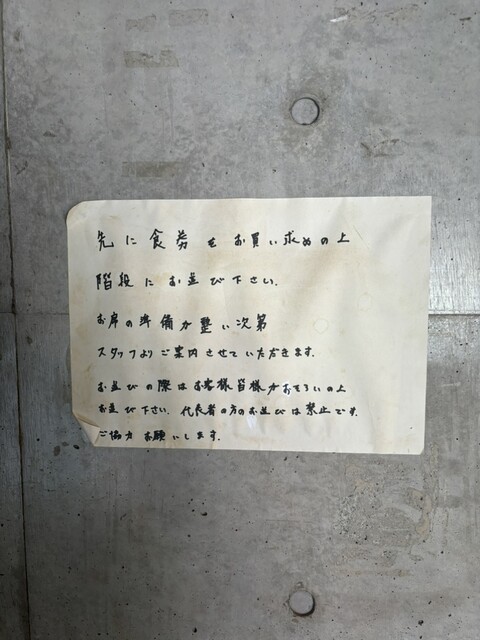 先に食券をお買い求めの上
階段にお並び下さい.
お席の準備が整い次第
スタッフよりご案内させていただきます.
お並びの際はお客様皆様がおそろいの上
お並び下さい. 代表者の方のお並びは禁止です.
ご協力お願いします.